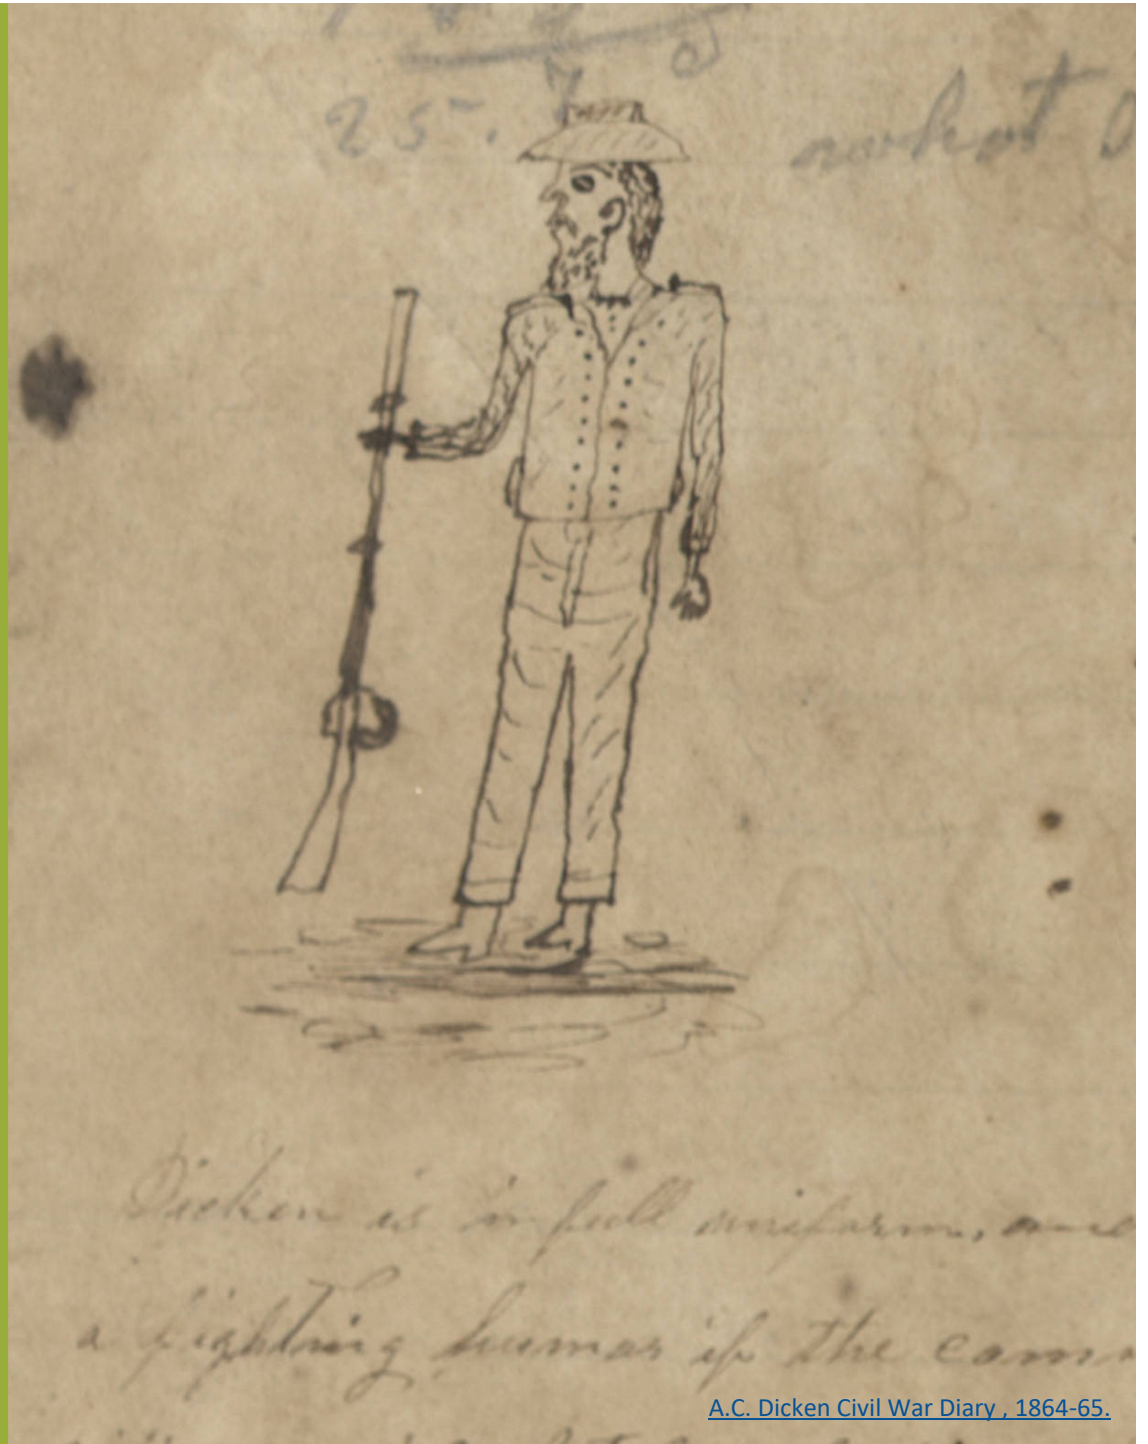 25.
what
Dicken is in full uniform, and
a fighting humor if the comm
A.C. Dicken Civil War Diary , 1864-65.